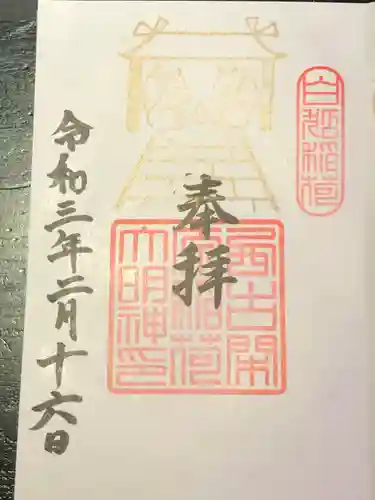 白姫稲荷
奉拝
西古開
稲荷
大明神印
令和三年二月十六日